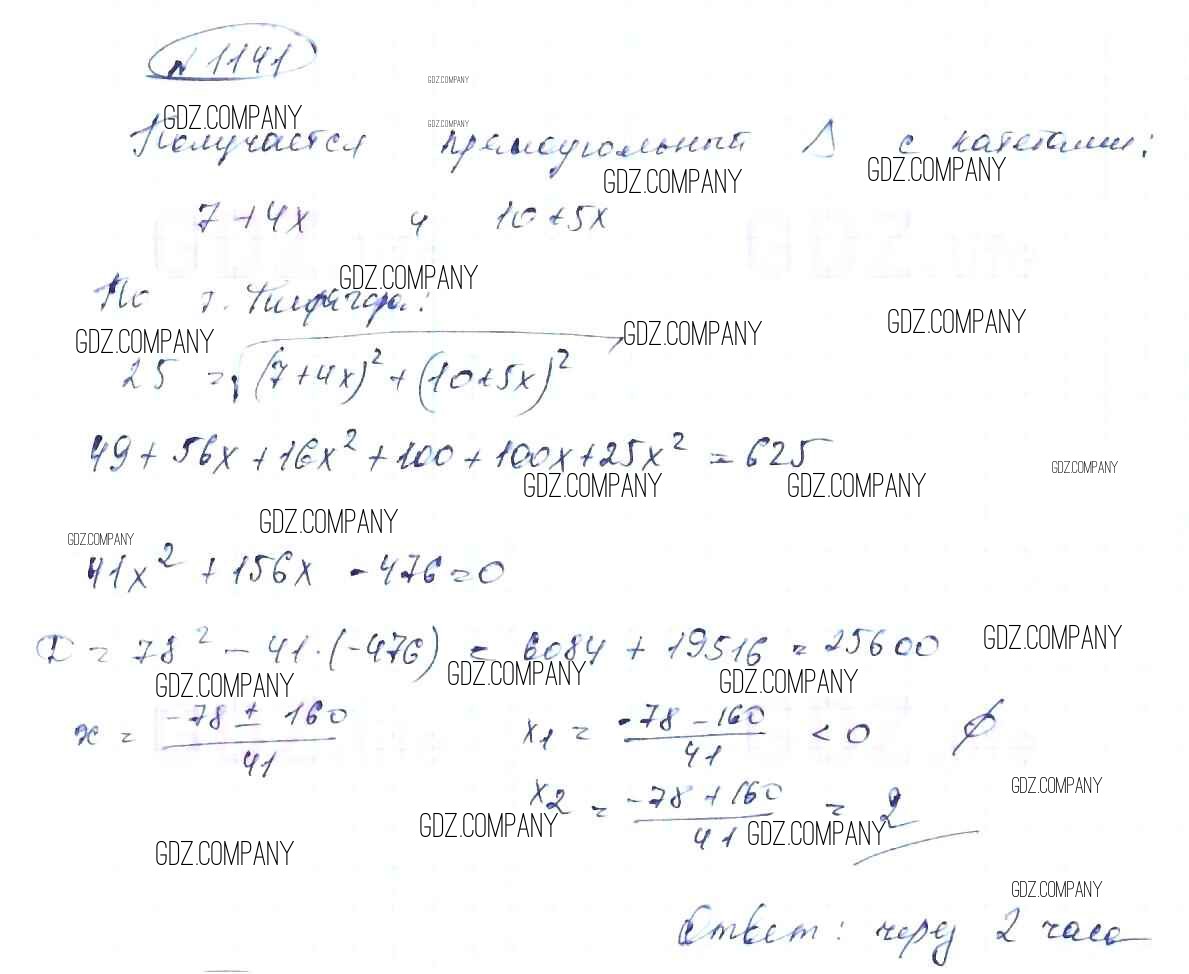 № 1141
GDZ.COMPANY
GDZ.COMPANY
GDZ.COMPANY
Получается прямоугольный Δ с катетами:
GDZ.COMPANY
GDZ.COMPANY
7+4x и 10+5x
GDZ.COMPANY
По т. Пифагора:
GDZ.COMPANY
GDZ.COMPANY
GDZ.COMPANY
25 = √(7+4x)² + (10+5x)²
49 + 56x + 16x² + 100 + 100x + 25x² = 625
GDZ.COMPANY
GDZ.COMPANY
GDZ.COMPANY
GDZ.COMPANY
GDZ.COMPANY
41x² + 156x - 476 = 0
D = 78² - 41·(-476) = 6084 + 19516 = 25600
GDZ.COMPANY
GDZ.COMPANY
GDZ.COMPANY
GDZ.COMPANY
x = (-78 ± 160)/41 x1 = (-78 - 160)/41 < 0 ∅
GDZ.COMPANY
x2 = (-78 + 160)/41 = 2
GDZ.COMPANY
GDZ.COMPANY
GDZ.COMPANY
GDZ.COMPANY
Ответ: через 2 часа